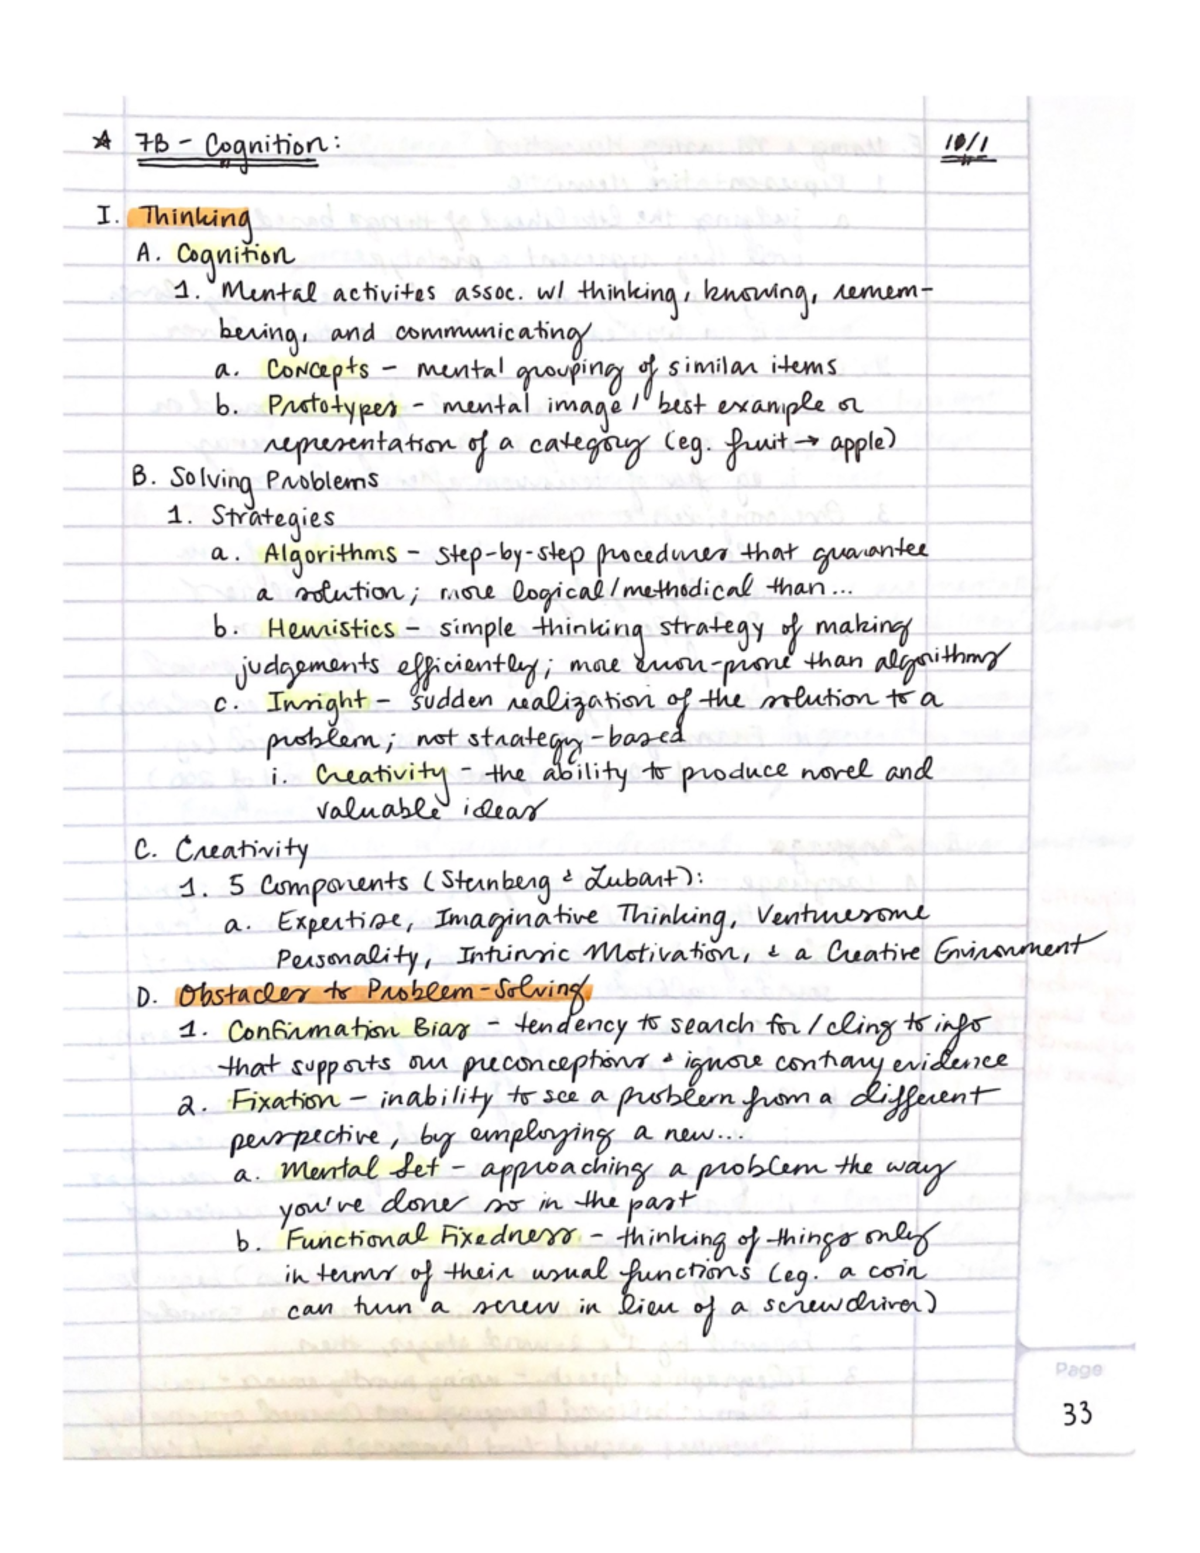 ☆ 7B - Cognition: 10/1
I. Thinking
A. Cognition
1. Mental activites assoc. w/ thinking, knowing, remem-
bering, and communicating
a. Concepts - mental grouping of similar items
b. Prototypes - mental image / best example or
representation of a category (eg. fruit → apple)
B. Solving Problems
1. Strategies
a. Algorithms - step-by-step procedures that guarantee
a solution; more logical/methodical than...
b. Heuristics - simple thinking strategy of making
judgements efficiently; more error-prone than algorithms
c. Insight - sudden realization of the solution to a
problem; not strategy-based
i. Creativity - the ability to produce novel and
valuable ideas
C. Creativity
1. 5 Components (Sternberg & Lubart):
a. Expertise, Imaginative Thinking, Venturesome
Personality, Intrinsic Motivation, & a Creative Environment
D. Obstacles to Problem-Solving
1. Confirmation Bias - tendency to search for / cling to info
that supports our preconceptions & ignore contrary evidence
2. Fixation - inability to see a problem from a different
perspective, by employing a new...
a. Mental Set - approaching a problem the way
you've done so in the past
b. Functional Fixedness - thinking of things only
in terms of their usual functions (eg. a coin
can turn a screw in lieu of a screwdriver)
Page
33